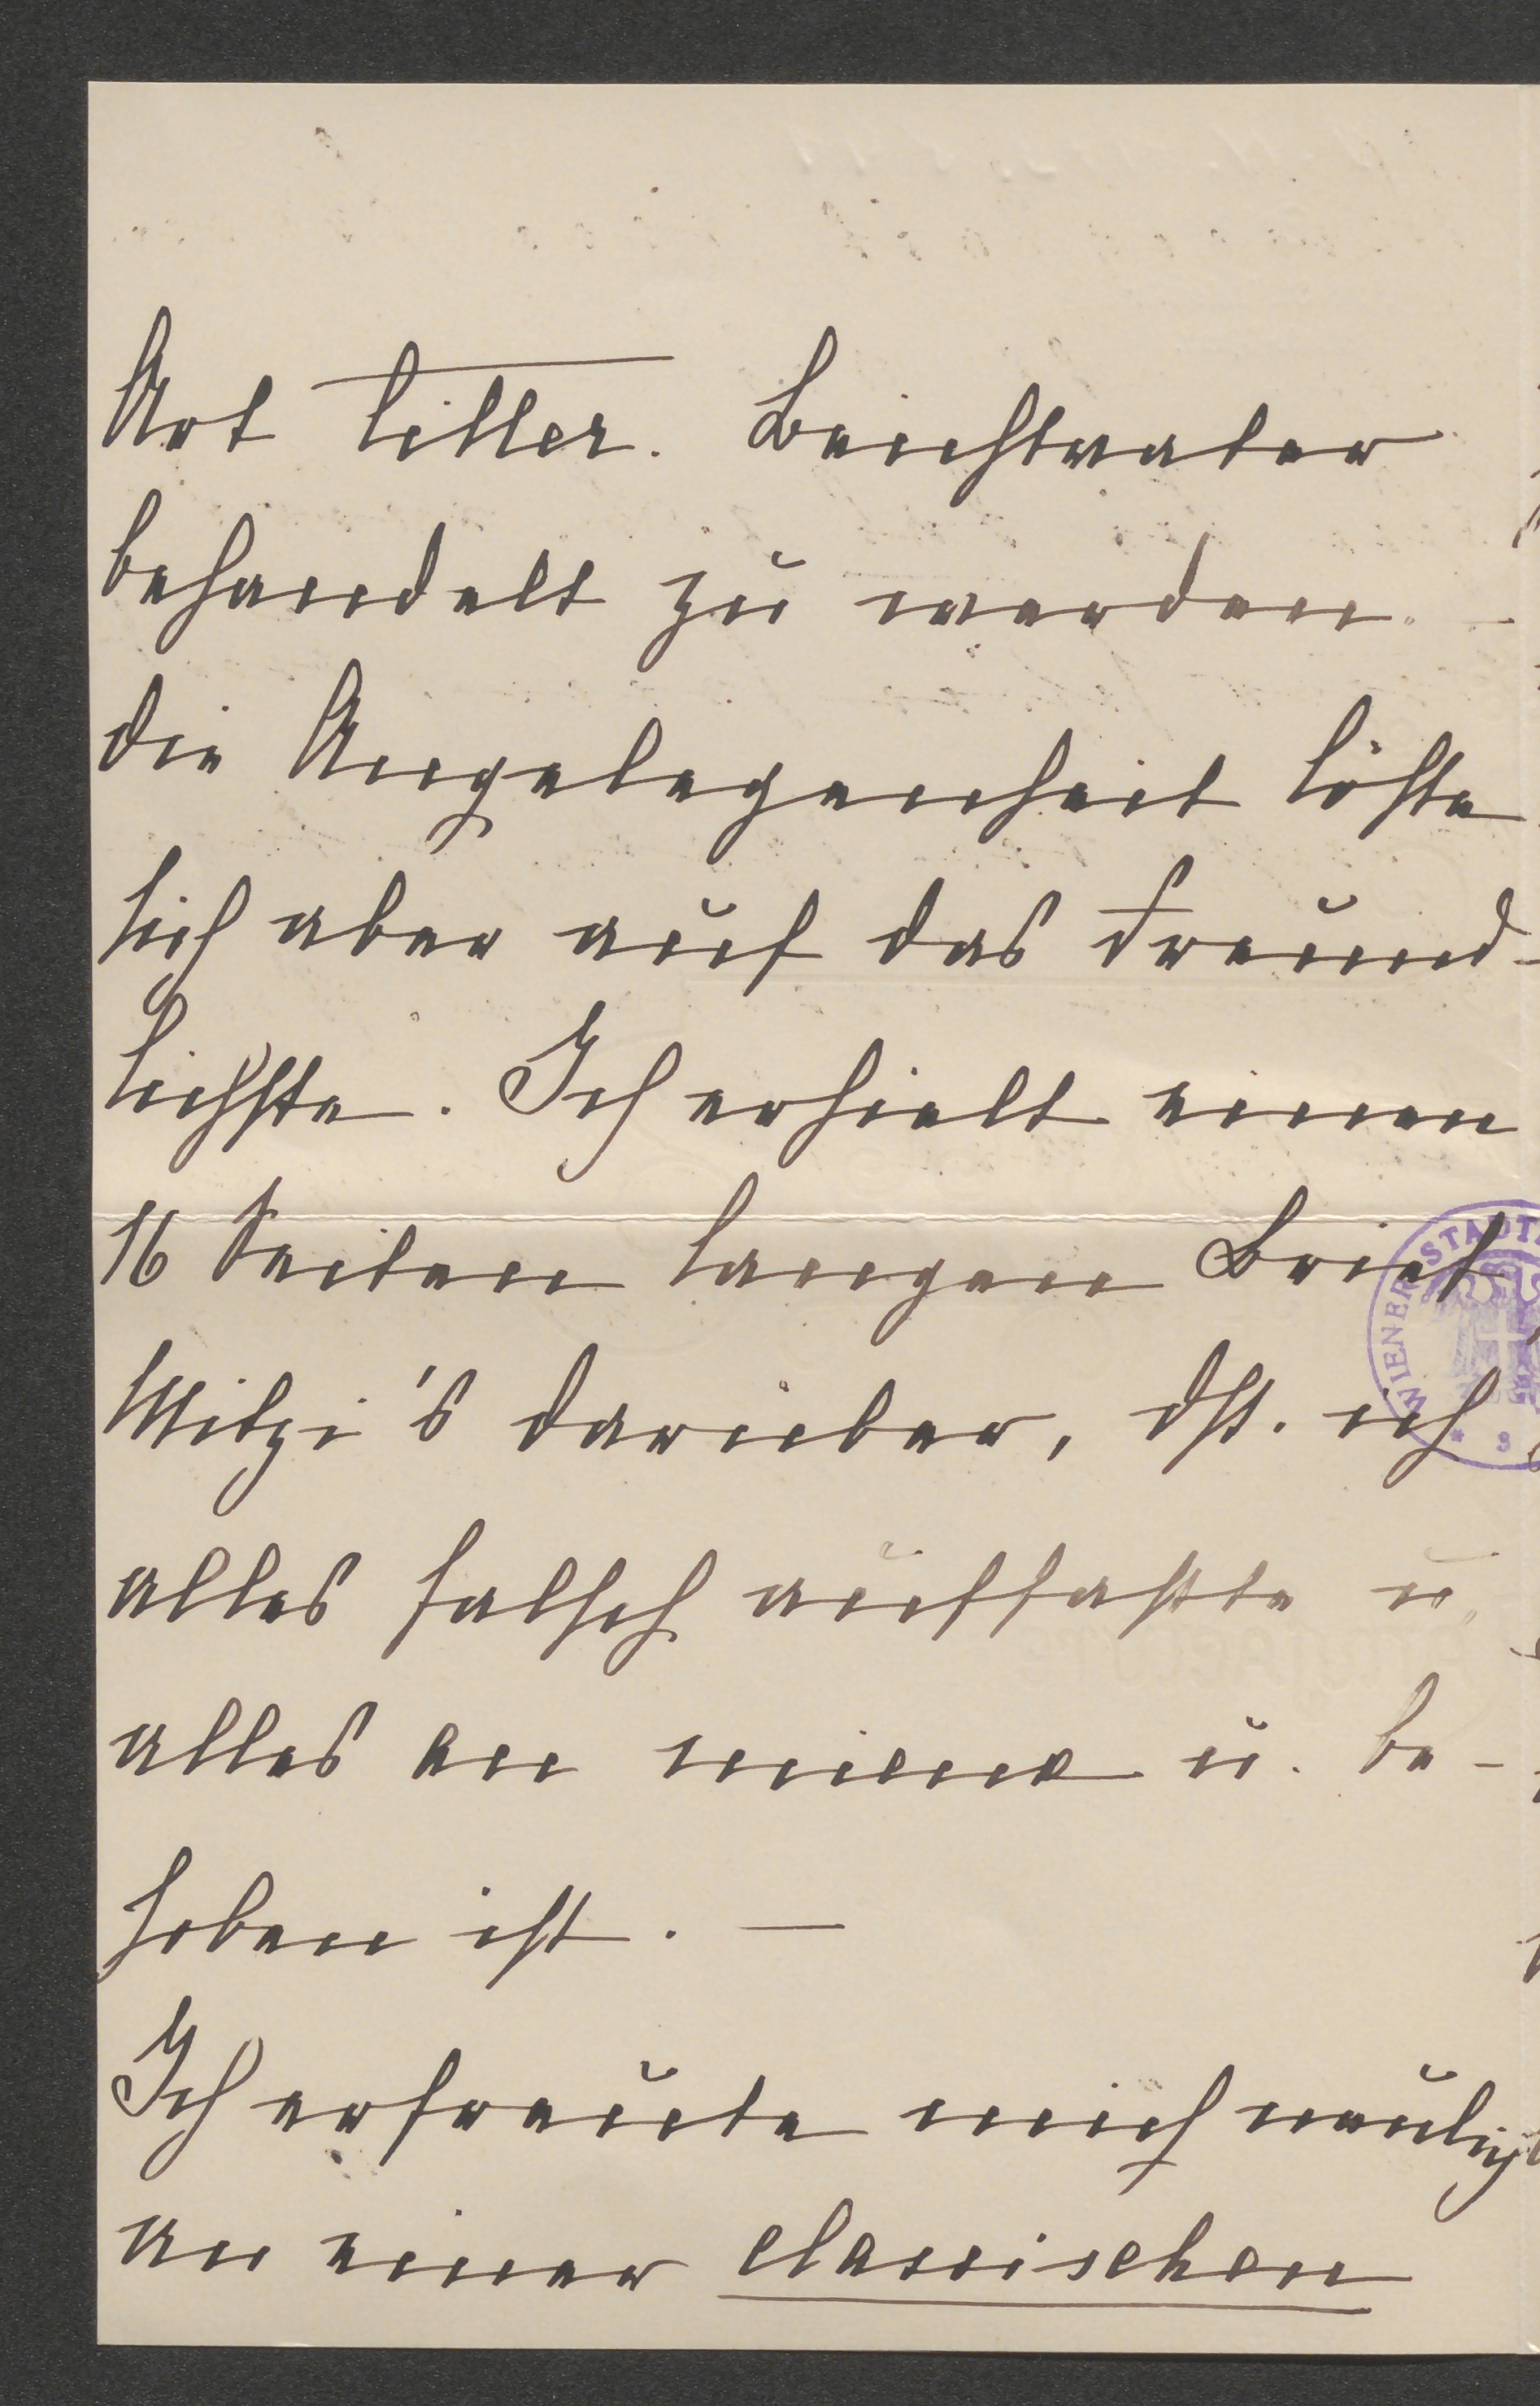 Art litter. Beichtvater
behandelt zu werden. –
die Angelegenheit löste
sich aber auf das Freund-
lichste. Ich erhielt einen
16 Seiten langen Brief
Mitzi's darüber, dſt. ich
alles falsch auffaßte u.
alles en mieux u. be-
hoben ist. —
Ich erfreute mich neulich
an einer classischen
WIENER STADT